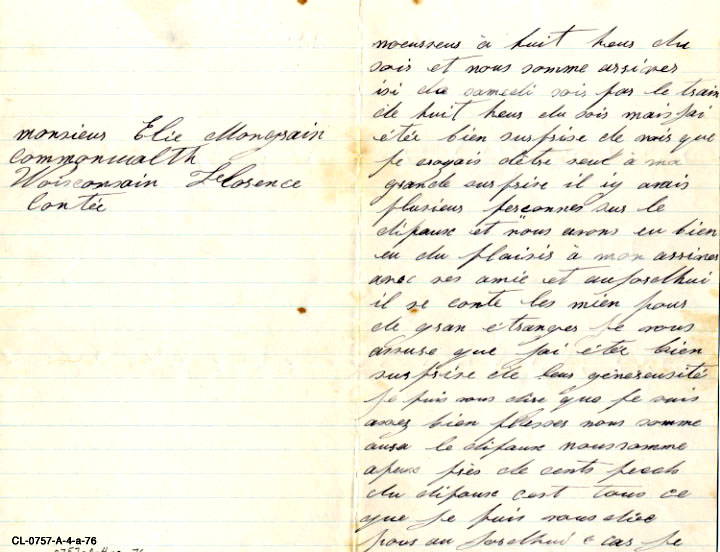 monsieur Elie Mongrain
Commonwalth
Woisconsain Florence
Contée
à huit heurs du
sois et nous somme arriver
isi du samedi sois par le train
de huit heurs du sois mais jai
étée bien surprise de voir que
je croyais dêtre seul à ma
grande surprise il iy avais
plusieurs personnes sur le
dipaux et nous avons eu bien
eu du plaisis à mon arriver
avec ses amie et
il se conte les mien pour
de gran étranger je vous
assuse que jai étée bien
surprise de leus génereusité
je puis vous dire que je suis
assez bien nous somme
le dipaux noussomme
apeux près de cents
du dipaux cest tous ce
que je puis vous dire
pour au car je
CL-0757-A-4-a-76